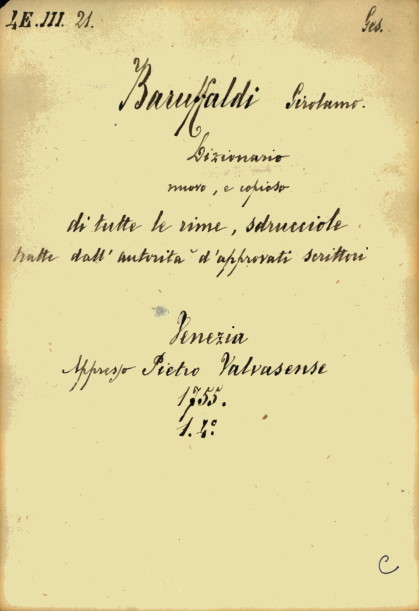 4E.III. 21.
Ges.
Baruffaldi Girolamo.
Dizionario
nuovo, e copioso
di tutte le rime, sdrucciole
tratte dall' autorità d'approvati scrittori
Venezia
Appresso Pietro Valvasense
1755.
1. 4º
C